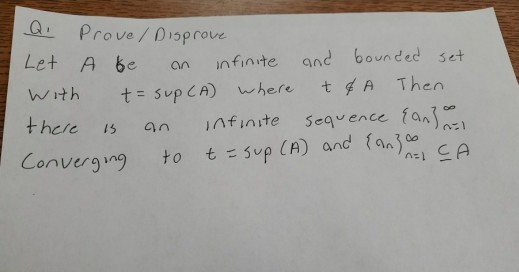 Q1 Prove/Disprove
Let A be an infinite and bounded set
With t = sup(A) where t ∉ A Then
there is an infinite sequence {an}∞n=1
Converging to t = sup(A) and {an}∞n=1 ⊆ A